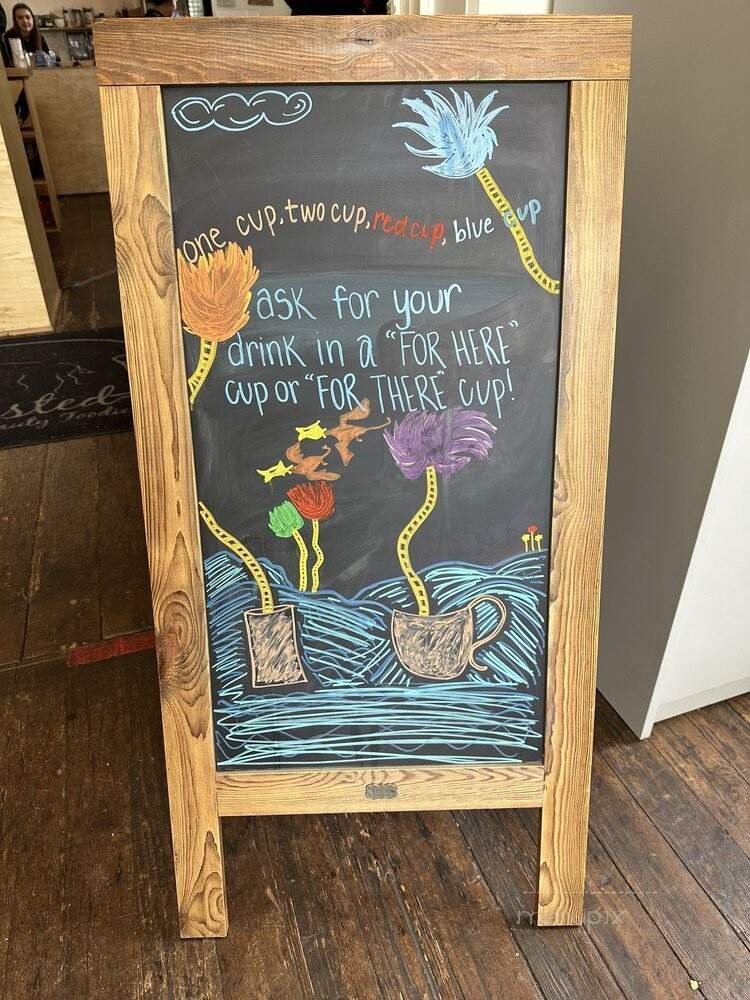 one cup, two cup, red cup, blue cup
ask for your
drink in a "FOR HERE"
cup or "FOR THERE" cup!